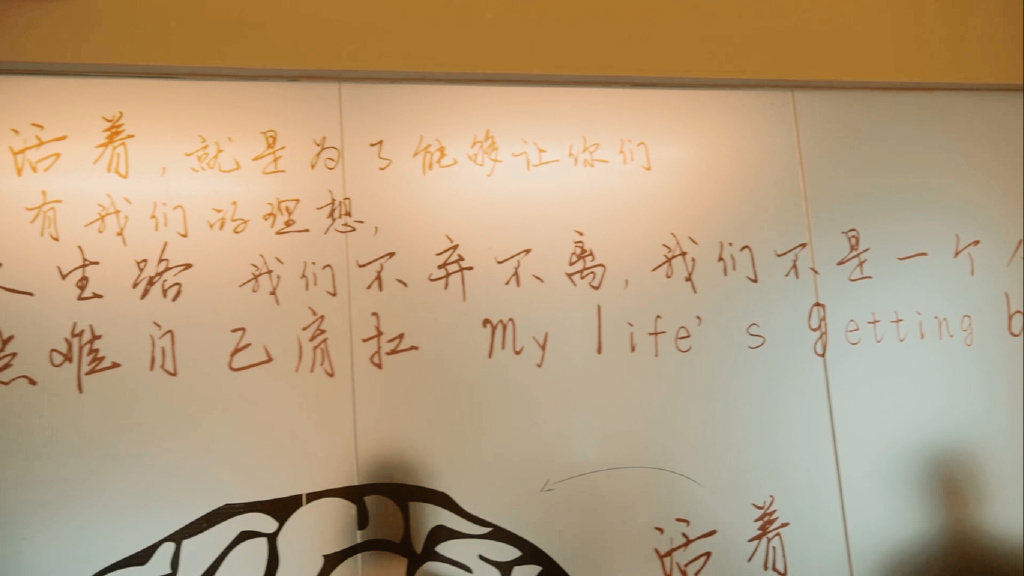 活着,就是为了能够让你们
有我们的理想,
人生路 我们不弃不离,我们不是一个
难 自己肩扛 My life's getting b
活着